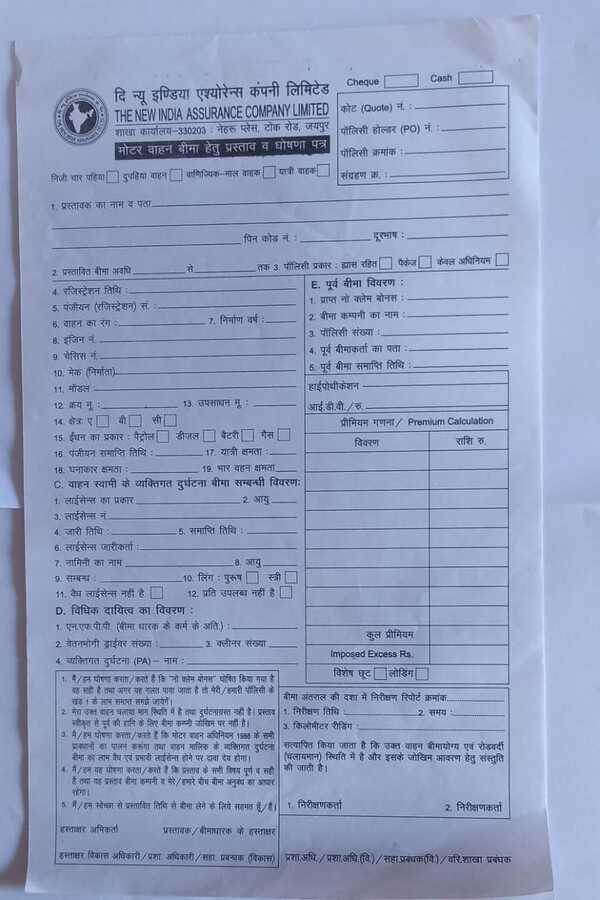 दि न्यू इण्डिया एश्योरेन्स कंपनी लिमिटेड
THE NEW INDIA ASSURANCE COMPANY LIMITED
शाखा कार्यालय–330203 : नेहरू प्लेस, टोंक रोड, जयपुर
मोटर वाहन बीमा हेतु प्रस्ताव व घोषणा पत्र
Cheque Cash
कोट (Quote) नं. :
पॉलिसी होल्डर (PO) नं. :
पॉलिसी क्रमांक :
संग्रहण क्र. :
निजी चार पहिया दुपहिया वाहन वाणिज्यिक–माल वाहक यात्री वाहक
1. प्रस्तावक का नाम व पता
पिन कोड नं : दूरभाष :
2. प्रस्तावित बीमा अवधि से तक 3. पॉलिसी प्रकार : ह्रास रहित पैकेज केवल अधिनियम
4. रजिस्ट्रेशन तिथि :
5. पंजीयन (रजिस्ट्रेशन) सं. :
6. वाहन का रंग : 7. निर्माण वर्ष :
8. इंजिन नं.
9. चेसिस नं.
10. मेक (निर्माता)
11. मॉडल
12. क्रय मू : 13. उपसाधन मू :
14. क्षेत्रः ए बी सी
15. ईंधन का प्रकार : पैट्रोल डीजल बैटरी गैस
16. पंजीयन समाप्ति तिथि : 17. यात्री क्षमता :
18. घनाकार क्षमता : 19. भार वहन क्षमता
C. वाहन स्वामी के व्यक्तिगत दुर्घटना बीमा सम्बन्धी विवरणः
1. लाईसेन्स का प्रकार 2. आयु
3. लाईसेन्स नं
4. जारी तिथि : 5. समाप्ति तिथि :
6. लाईसेन्स जारीकर्ता :
7. नामिनी का नाम 8. आयु
9. सम्बन्ध : 10. लिंग : पुरूष स्त्री
11. वैध लाईसेन्स नहीं है 12. प्रति उपलब्ध नहीं है
D. विधिक दायित्व का विवरण :
1. एन.एफ.पी.पी. (बीमा धारक के कर्म के अति.) :
2. वेतनभोगी ड्राईवर संख्या : 3. क्लीनर संख्या
4. व्यक्तिगत दुर्घटना (PA)– नाम :
E. पूर्व बीमा विवरण :
1. प्राप्त नो क्लेम बोनस :
2. बीमा कम्पनी का नाम :
3. पॉलिसी संख्या :
4. पूर्व बीमाकर्ता का पता :
5. पूर्व बीमा समाप्ति तिथि :
हाईपोथीकेशन
आई.डी.वी./रु.
प्रीमियम गणना/ Premium Calculation
विवरण राशि रु.
कुल प्रीमियम
Imposed Excess Rs.
विशेष छूट लोडिंग
1. मैं/हम घोषणा करता/करते हैं कि "नो क्लेम बोनस" घोषित किया गया है
वह सही है तथा अगर यह गलत पाया जाता है तो मेरी/हमारी पॉलिसी के
खंड 1 के लाभ समाप्त समझे जायेंगे।
2. मेरा उक्त वाहन चलाया मान स्थिति में है तथा दुर्घटनाग्रस्त नहीं है। प्रस्ताव
स्वीकृत से पूर्व की हानि के लिए बीमा कम्पनी जोखिम पर नहीं है।
3. मैं/हम घोषणा करता/करते हैं कि मोटर वाहन अधिनियम 1988 के सभी
प्रावधानों का पालन करूंगा तथा वाहन मालिक के व्यक्तिगत दुर्घटना
बीमा का लाभ वैध एवं प्रभावी लाईसेन्स होने पर दावा देय होगा।
4. मैं/हम यह घोषणा करता/करते हैं कि प्रस्ताव के सभी विषय पूर्ण व सही
है तथा वह प्रस्ताव बीमा कम्पनी व मेरे/हमारे बीच बीमा अनुबंध का आधार
रहेगा।
5. मैं/हम स्वेच्छा से प्रस्तावित तिथि से बीमा लेने के लिये सहमत हूँ/हैं।
हस्ताक्षर अभिकर्ता प्रस्तावक/बीमाधारक के हस्ताक्षर
हस्ताक्षर विकास अधिकारी/प्रशा. अधिकारी/सहा. प्रबन्धक (विकास)
बीमा अंतराल की दशा में निरीक्षण रिपोर्ट क्रमांक
1. निरीक्षण तिथि : 2. समय :
3. किलोमीटर रीडिंग :
सत्यापित किया जाता है कि उक्त वाहन बीमायोग्य एवं रोडवर्दी
(चलायमान) स्थिति में है और इसके जोखिम आवरण हेतु संस्तुति
की जाती है।
1. निरीक्षणकर्ता 2. निरीक्षणकर्ता
प्रशा.अधि./प्रशा.अधि.(वि.)/सहा.प्रबंधक(वि.)/वरि.शाखा प्रबंधक